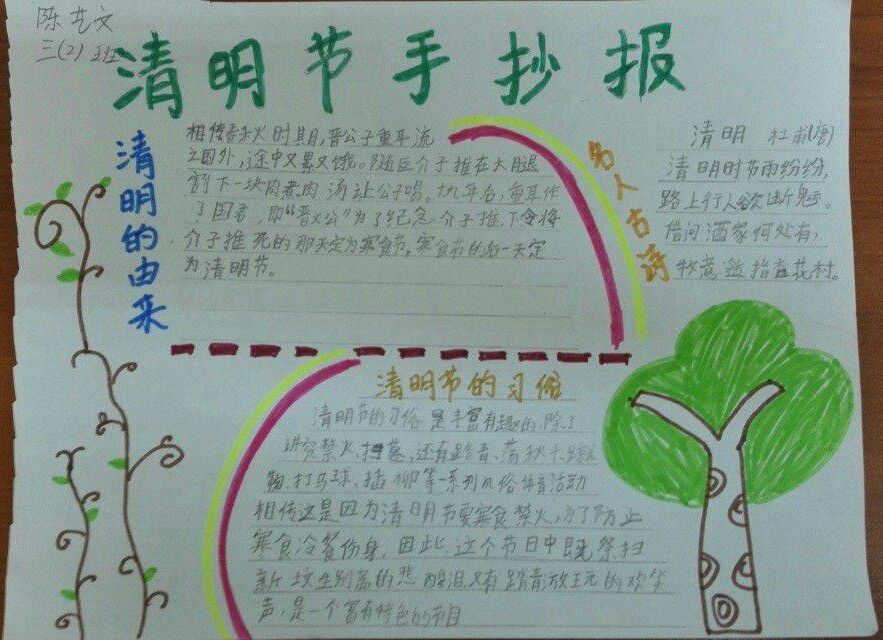 陈艺文
三(2)班
清明节手抄报
清明的由来
相传春秋火时其月,晋公子重耳流
亡国外,途中又累又饿。随臣介子推在大腿
割下一块肉煮肉汤让公子喝。十九年后,重耳作
了国君,即“晋文公”为了纪念介子推,下令将
介子推死的那天定为寒食节。寒食节的后一天定
为清明节。
名人古诗
清明 杜甫(唐)
清明时节雨纷纷,
路上行人欲断魂。
借问酒家何处有,
牧童遥指杏花村。
清明节的习俗
清明节的习俗是丰富有趣的,除了
讲究禁火、扫墓,还有踏青、荡秋千、蹴
鞠、打马球、插柳等一系列风俗体育活动
相传这是因为清明节要寒食禁火,为了防止
寒食冷餐伤身,因此,这个节日中既祭扫
新坟生别离的悲酸泪,又有踏青放玩的欢笑
声,是一个富有特色的节日